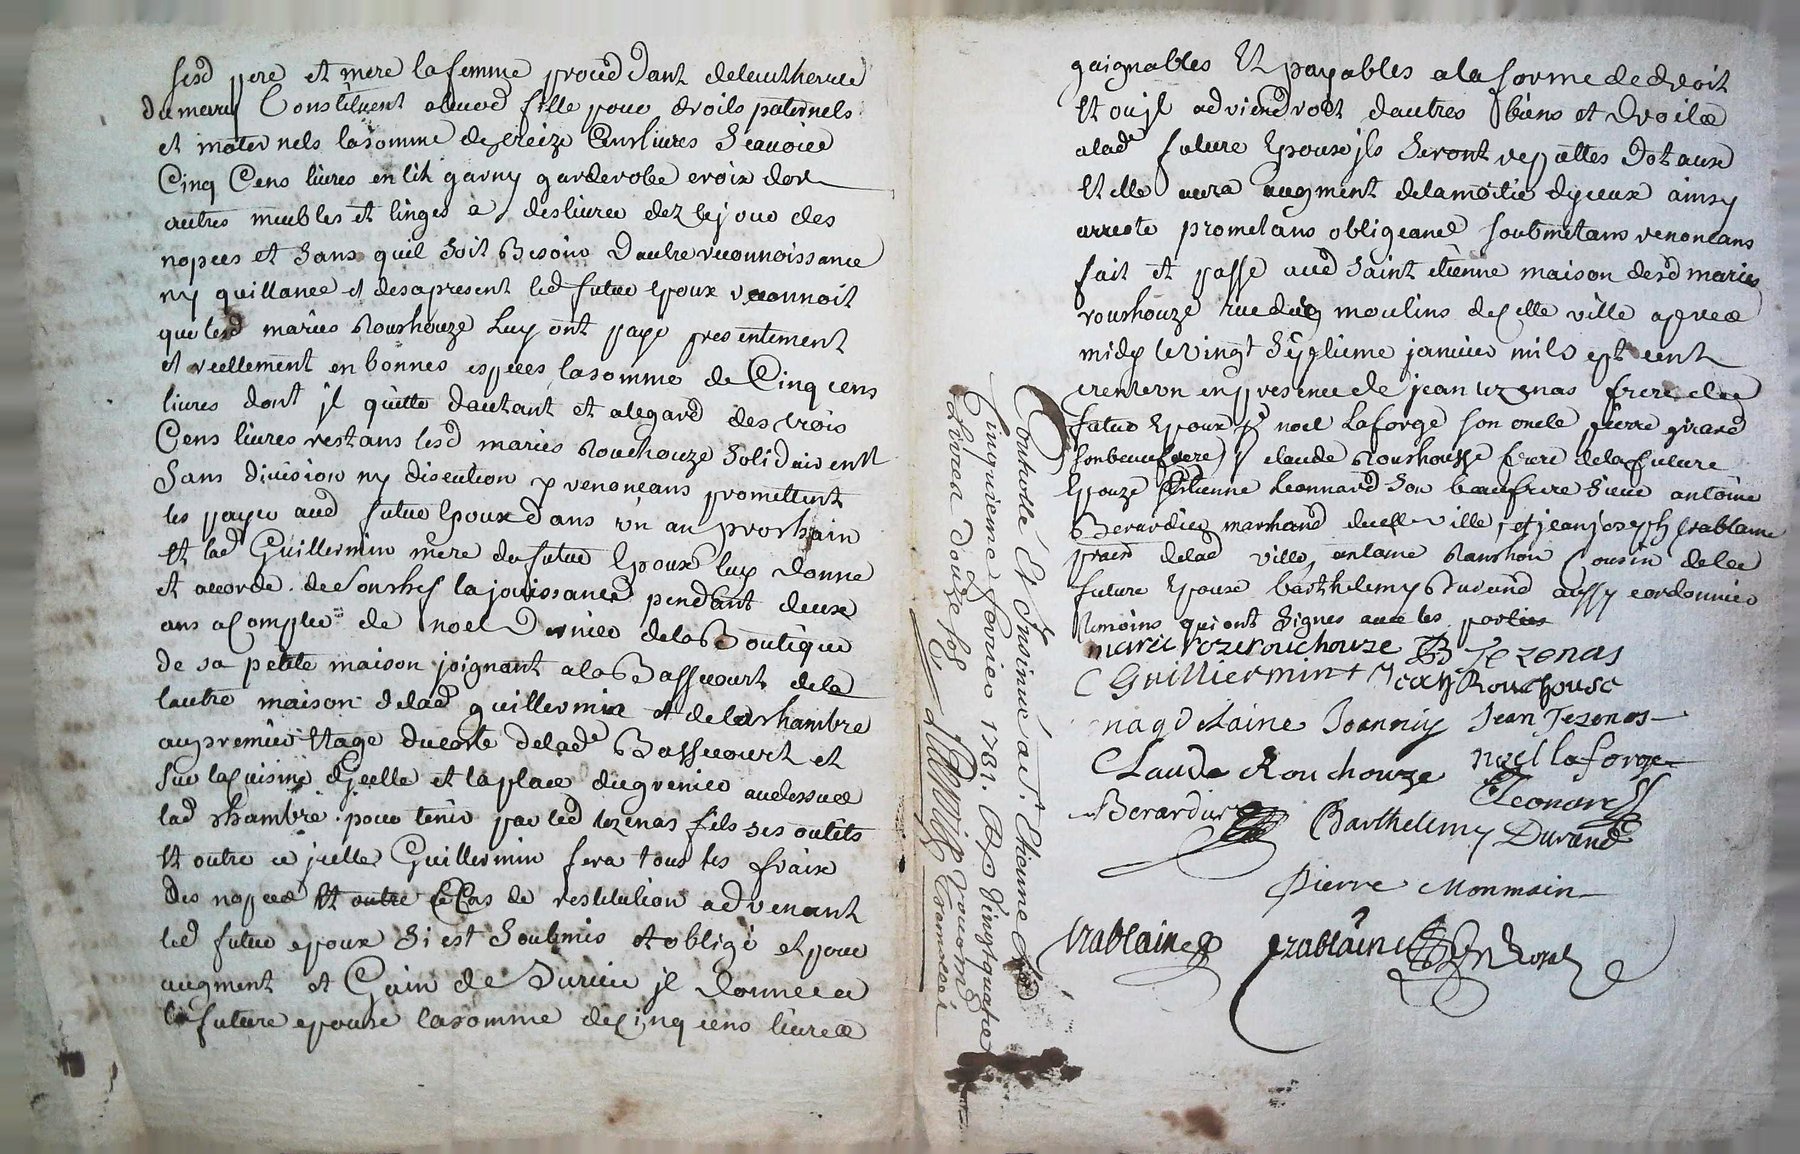 sesd pere et mere la femme proced dant delautherite
du mary Constituent aleurd fille pour droits paternels
et maternels lasomme de treize Cens livres Scavoir
Cinq Cens livres en lit garny garderobe croix dor
autres meubles et linges a deslivrer dez le jour des
nopces et Sans quil Soit Besoins dautre reconnoissance
ny quittance et desapresent led futur Epoux reconnoit
que lesd mariés Roushouze Luy ont payé presentement
et reellement en bonnes especes lasomme de Cinq cens
livres dont jl quitte dautant et alegard des trois
Cens livres restans lesd mariés Rouchouze Solidairemt
Sans division ny discution y renonceans promettent
les payer aud futur Epoux dans un an prochain
Et lad Guillermin mere du futur Epoux luy donne
et accorde de son chef la jouissance pendant deux
ans acompter de noel dernier de la Boutique
de sa petite maison joignant a la Bassecourt de la
lautre maison delad guillermin et de la chambre
au premier Etage du costé delade Bassecourt et
Sur la cuisine dycelle et la place du grenier audessus de
lad chambre pour tenir par led tezenas fils ses outils
Et outre ce jcelle Guillermin fera tous les fraix
des nopces Et outre le Cas de restitution advenant
led futur epoux Si est Soubmis et obligé et pour
augment et Gain de Survie jl donne a
la future epouse lasomme de cinq cens livres
gaignables Et payables a la forme de droit
Et ou jl adviendroit dautres biens et droits
alade future Epouse jls Seront reputtes dotaux
Et elle aura augment de la moitié dyceux ainsy
arresté promettans obligeans soubmettans renonceans
fait et passé aud Saint etienne maison desd mariés
roushouze rue des moulins de celle ville apres
midy le vingt Septieme janvier mil sept cent
trente un en presence de jean tezenas frere du
futur Epoux Sr noel Laforge son oncle pierre girard
son beaufrere claude Roushousse frere de la future
Epouze Etienne Leonnard Son beaufrere Sieur antoine
Berardier marchand de celle ville, et jean joseph trablaine
prain delad ville, antoine Ranchon Cousin de la
future Epouse barthelemy Durand aussy cordonnier
temoins qui ont Signés avec les parties
marie roze rouchouze Tezenas
Guilliermint Jean Rouchouse
magdelaine Joannin Jean Tezenas
Claude Rouchouze noel laforge
Leonard
Berardier Barthelemy Durand
Pierre Monmain
trablaine trablaine
Controllé Et Insinué a St Etienne le
Cinquieme fevrier 1731. Reçu Vingt quatre
Livres douze sols